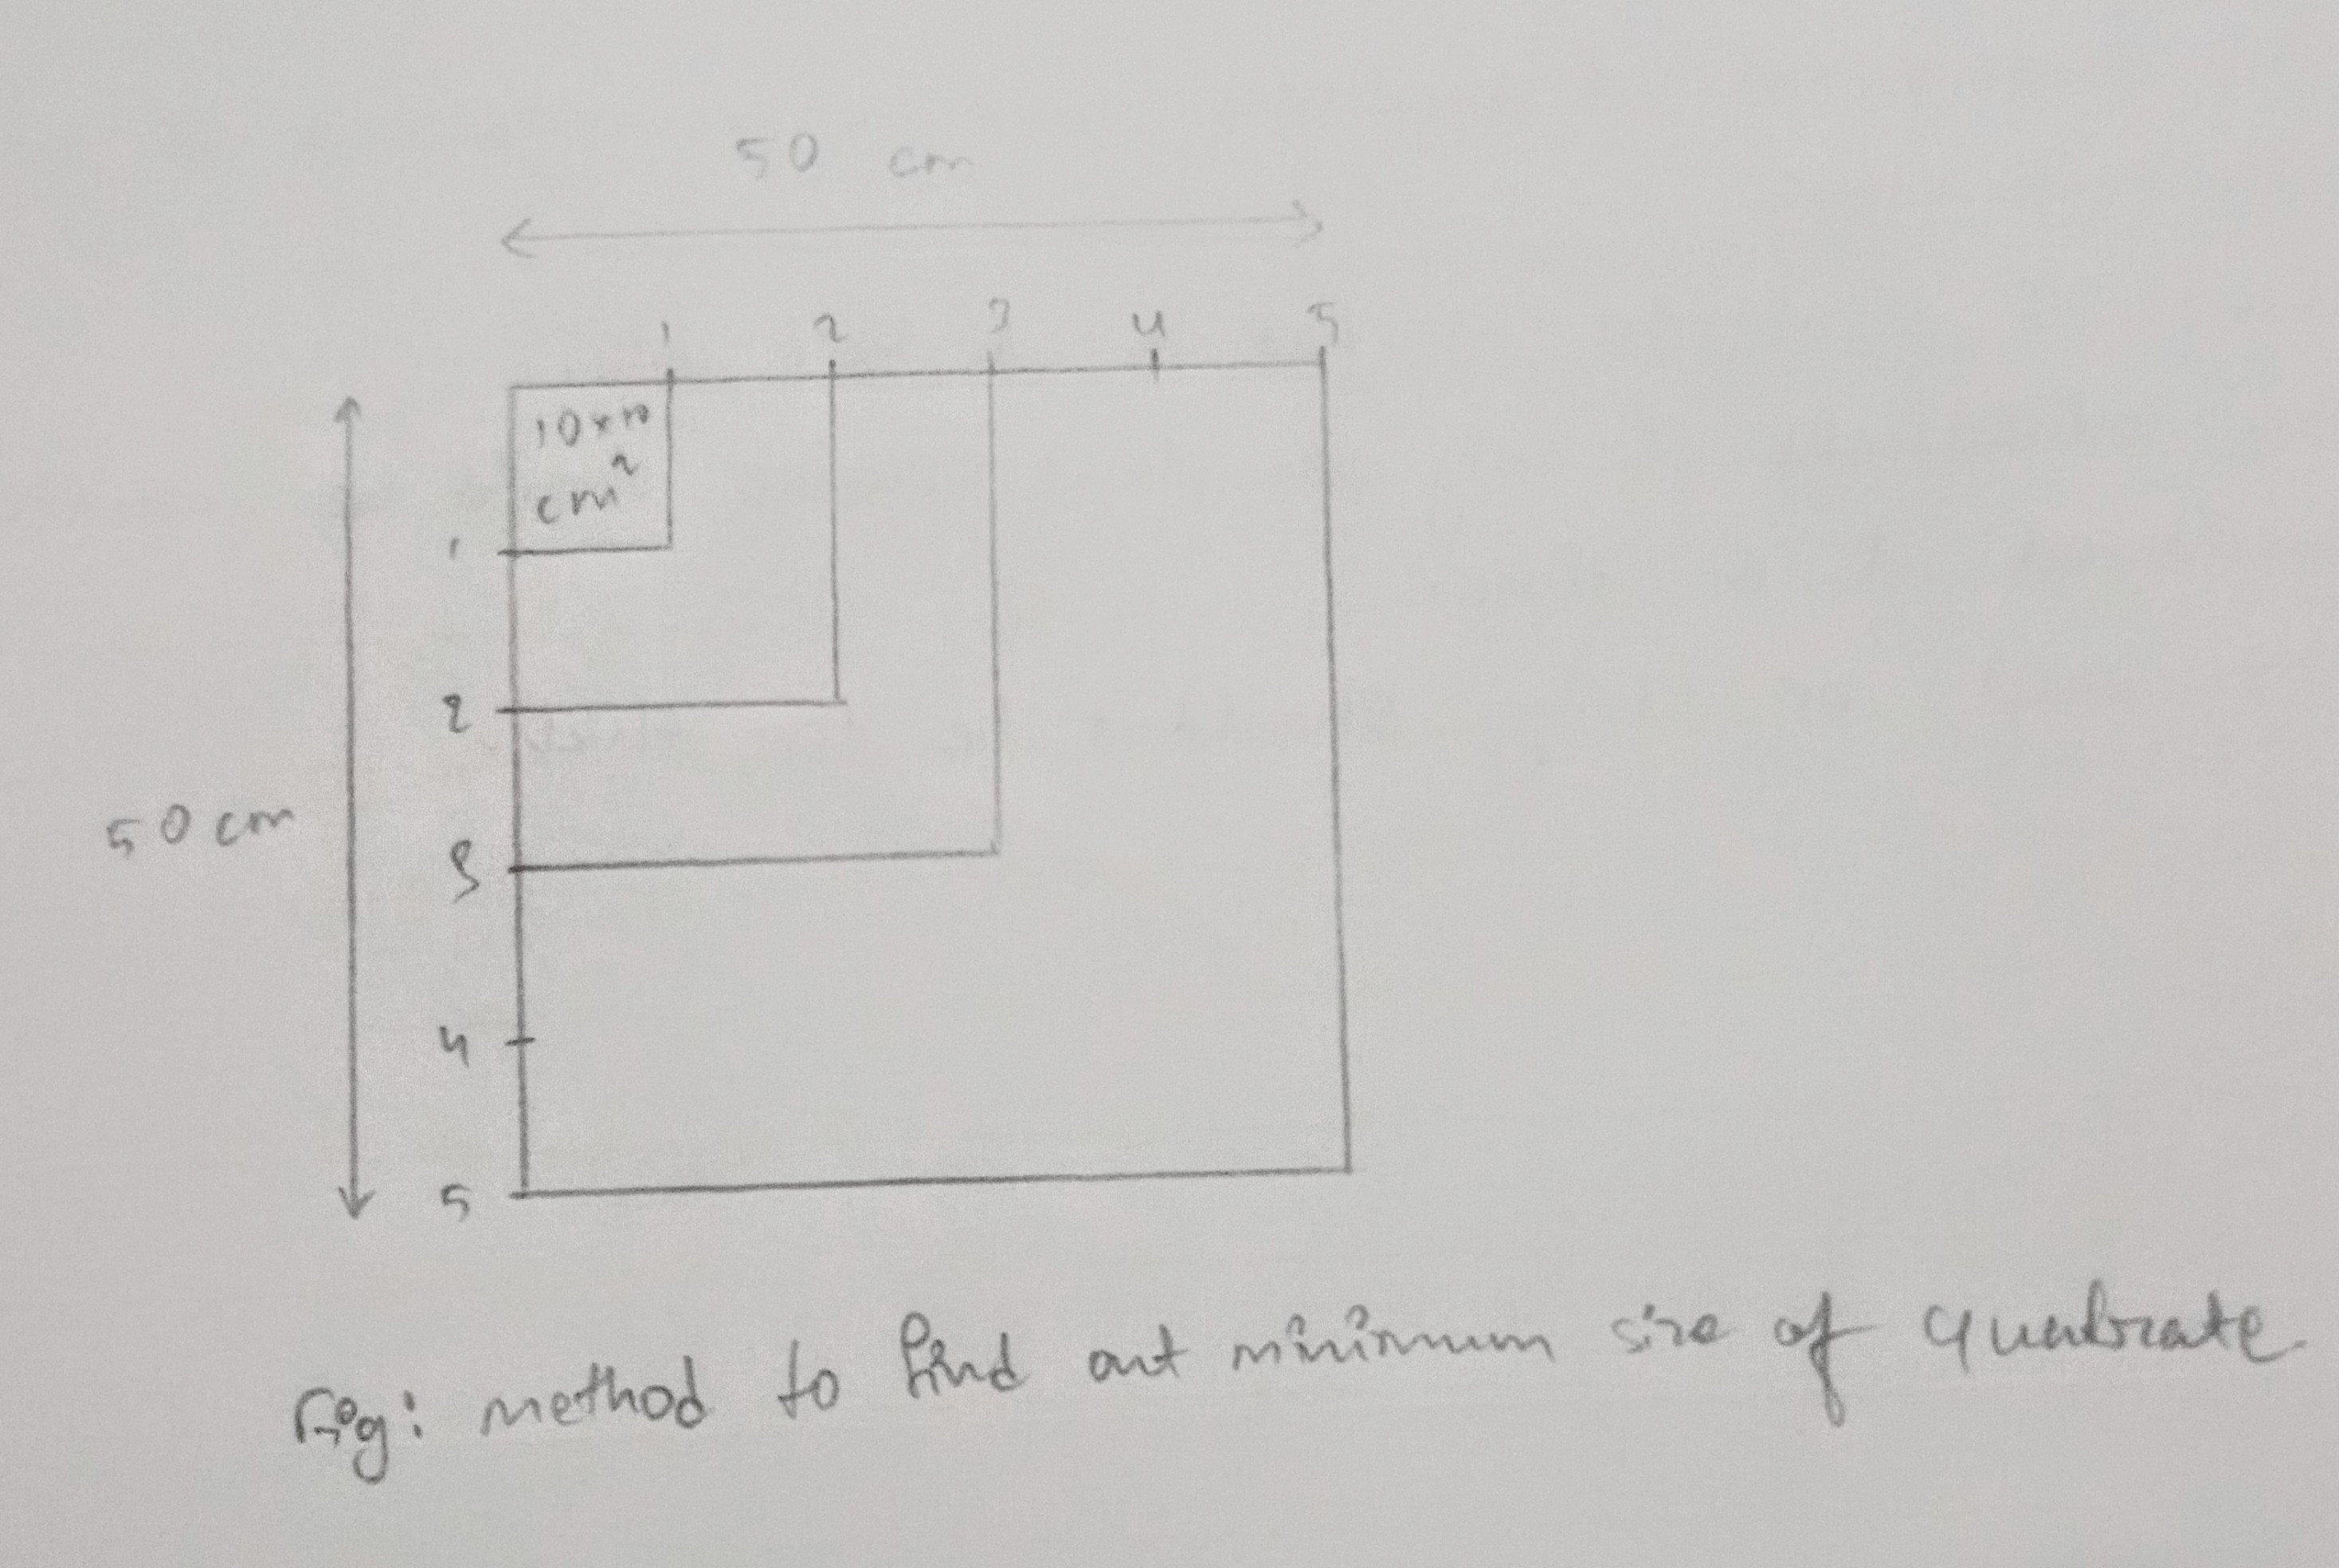 50 cm
1 2 3 4 5
10×10
cm²
1
2
3
50 cm
4
5
Fig: method to find out minimum size of quadrate